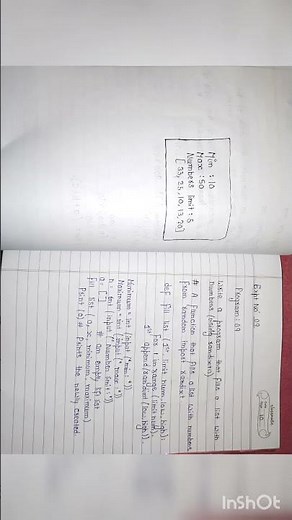 Expt No: 09
Program: 09
Write a program that fills a list with
numbers (using randint)
# A function that fills a list with numbers
from random import randint
def fill_list (lst, limit num, low, high):
for i in range (limit num):
lst append (randint (low, high))
Minimum = int (input ("min: "))
Maximum = int (input (" max: "))
n = int (input (" numbers limit: "))
a = [ ] # an empty list
fill_list (a, n, minimum, maximum)
Print (a) # Prints the newly created
Min : 10
Max : 50
Numbers limit : 5
[33, 25, 10, 13, 20]
InShot